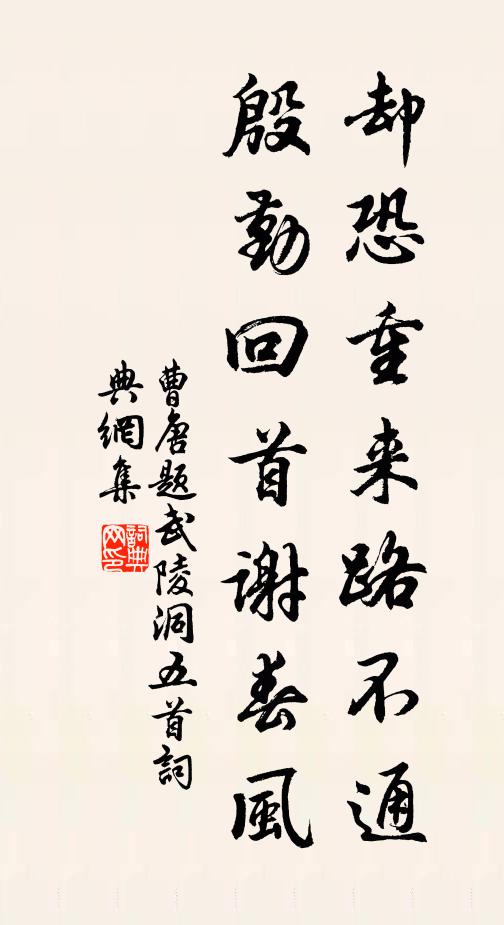 却恐重来路不通
殷勤回首謝春風
曹唐題武陵洞五首詞
典網集
詞典
网印